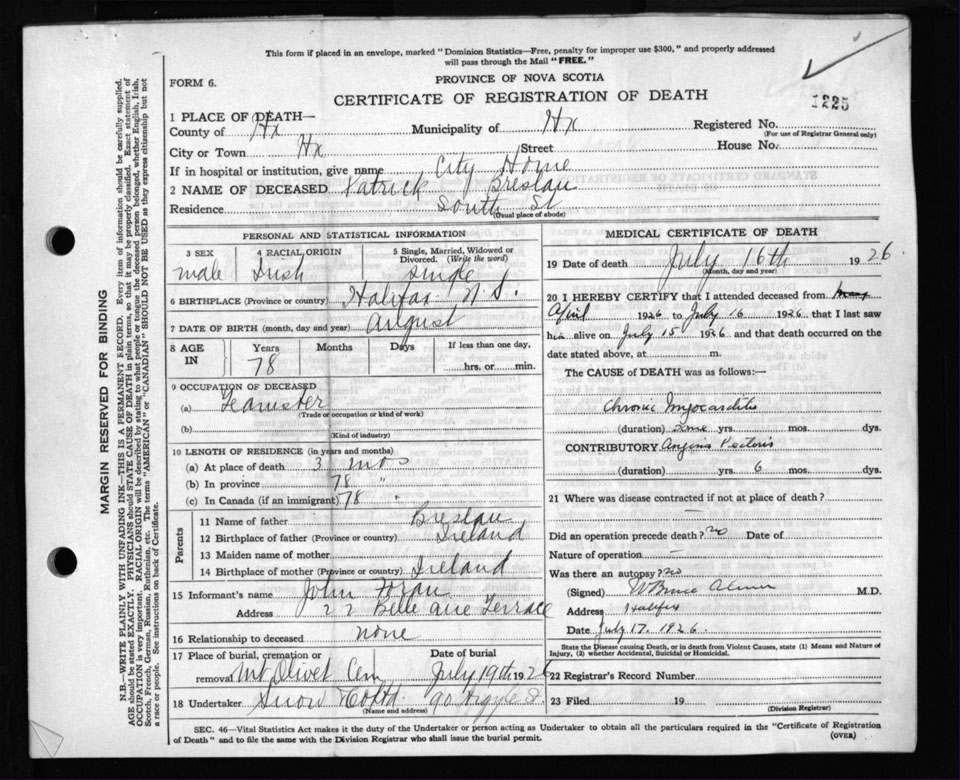 This form if placed in an envelope, marked "Dominion Statistics—Free, penalty for improper use $300," and properly addressed
will pass through the Mail "FREE."
FORM 6.
PROVINCE OF NOVA SCOTIA
CERTIFICATE OF REGISTRATION OF DEATH
1225
1 PLACE OF DEATH—
County of Hx Municipality of Hx Registered No.
(For use of Registrar General only)
City or Town Hx Street House No.
If in hospital or institution, give name City Home
2 NAME OF DECEASED Patrick Breslau
Residence South St
(Usual place of abode)
PERSONAL AND STATISTICAL INFORMATION
3 SEX 4 RACIAL ORIGIN 5 Single, Married, Widowed or
Divorced. (Write the word)
male Irish single
6 BIRTHPLACE (Province or country) Halifax N.S.
7 DATE OF BIRTH (month, day and year) August
8 AGE IN Years Months Days If less than one day,
78 hrs. or min.
9 OCCUPATION OF DECEASED
(a) Teamster
(Trade or occupation or kind of work)
(b)
(Kind of industry)
10 LENGTH OF RESIDENCE (in years and months)
(a) At place of death 3 mos
(b) In province 78 "
(c) In Canada (if an immigrant) 78 "
Parents
11 Name of father Breslau
12 Birthplace of father (Province or country) Ireland
13 Maiden name of mother
14 Birthplace of mother (Province or country) Ireland
15 Informant's name John Foran
Address 22 Belle Aire Terrace
16 Relationship to deceased none
17 Place of burial, cremation or Date of burial
removal Mt Olivet Cem July 19th 1926
18 Undertaker Snow Co Ltd 90 Argyle St.
(Name and address)
MEDICAL CERTIFICATE OF DEATH
19 Date of death July 16th 1926.
(Month, day and year)
20 I HEREBY CERTIFY that I attended deceased from
April 1926 to July 16 1926 that I last saw
him alive on July 15 1926 and that death occurred on the
date stated above, at m.
The CAUSE of DEATH was as follows:—
Chronic Myocarditis
(duration) Some yrs. mos. dys.
CONTRIBUTORY Angina Pectoris
(duration) yrs. 6 mos. dys.
21 Where was disease contracted if not at place of death?
—
Did an operation precede death? no Date of
Nature of operation —
Was there an autopsy? no
(Signed) W Bruce Almon M.D.
Address Halifax
Date July 17. 1926.
State the Disease causing Death, or in death from Violent Causes, state (1) Means and Nature of
Injury, (2) whether Accidental, Suicidal or Homicidal.
22 Registrar's Record Number
23 Filed 19
(Division Registrar)
SEC. 46—Vital Statistics Act makes it the duty of the Undertaker or person acting as Undertaker to obtain all the particulars required in the "Certificate of Registration
of Death" and to file the same with the Division Registrar who shall issue the burial permit.
(OVER)
MARGIN RESERVED FOR BINDING
N.B.—WRITE PLAINLY WITH UNFADING INK—THIS IS A PERMANENT RECORD. Every item of information should be carefully supplied.
AGE should be stated EXACTLY. PHYSICIANS should STATE CAUSE OF DEATH in plain terms, so that it may be properly classified. Exact statement of
OCCUPATION is very important. RACIAL ORIGIN will be described by stating to what people or tongue the deceased person belonged, whether English, Irish,
Scotch, French, German, Russian, Ruthenian, etc. The terms "AMERICAN" or "CANADIAN" SHOULD NOT BE USED as they express citizenship but not
a race or people. See instructions on back of Certificate.